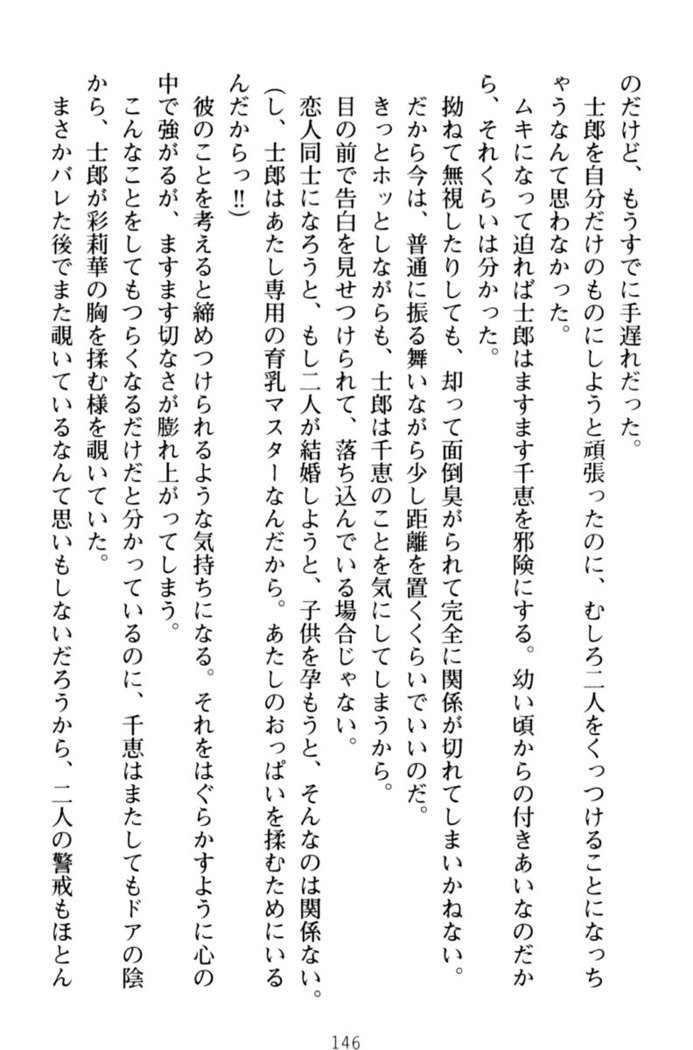 のだけど、もうすでに手遅れだった。
　士郎を自分だけのものにしようと頑張ったのに、むしろ二人をくっつけることになっち
ゃうなんて思わなかった。
　ムキになって迫れば士郎はますます千恵を邪険にする。幼い頃からの付きあいなのだか
ら、それくらいは分かった。
　拗ねて無視したりしても、却って面倒臭がられて完全に関係が切れてしまいかねない。
　だから今は、普通に振る舞いながら少し距離を置くくらいでいいのだ。
　きっとホッとしながらも、士郎は千恵のことを気にしてしまうから。
　目の前で告白を見せつけられて、落ち込んでいる場合じゃない。
　恋人同士になろうと、もし二人が結婚しようと、子供を孕もうと、そんなのは関係ない。
（し、士郎はあたし専用の育乳マスターなんだから。あたしのおっぱいを揉むためにいる
んだからっ!!）
　彼のことを考えると締めつけられるような気持ちになる。それをはぐらかすように心の
中で強がるが、ますます切なさが膨れ上がってしまう。
　こんなことをしてもつらくなるだけだと分かっているのに、千恵はまたしてもドアの陰
から、士郎が彩莉華の胸を揉む様を覗いていた。
　まさかバレた後でまた覗いているなんて思いもしないだろうから、二人の警戒もほとん
146